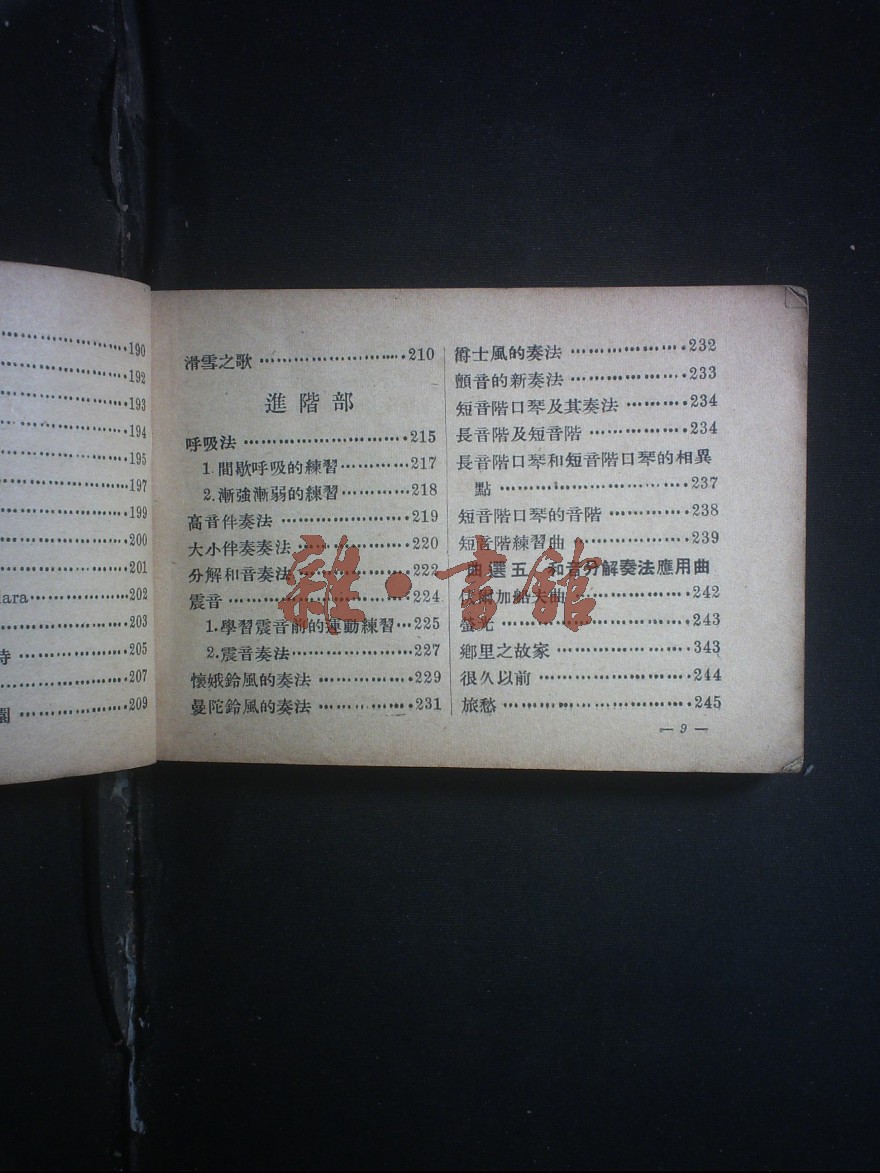 190
192
193
194
195
197
199
200
201
ara 202
203
205
207
209
滑雪之歌 210
進階部
呼吸法 215
1.間歇呼吸的練習 217
2.漸強漸弱的練習 218
高音伴奏法 219
大小伴奏奏法 220
分解和音奏法 222
震音 224
1.學習震音前的運動練習 225
2.震音奏法 227
懷娥鈴風的奏法 229
曼陀鈴風的奏法 231
爵士風的奏法 232
顫音的新奏法 233
短音階口琴及其奏法 234
長音階及短音階 234
長音階口琴和短音階口琴的相異
點 237
短音階口琴的音階 238
短音階練習曲 239
曲選五 和音分解奏法應用曲
伏爾加船夫曲 242
螢光 243
鄉里之故家 343
很久以前 244
旅愁 245
— 9 —
雜·書館